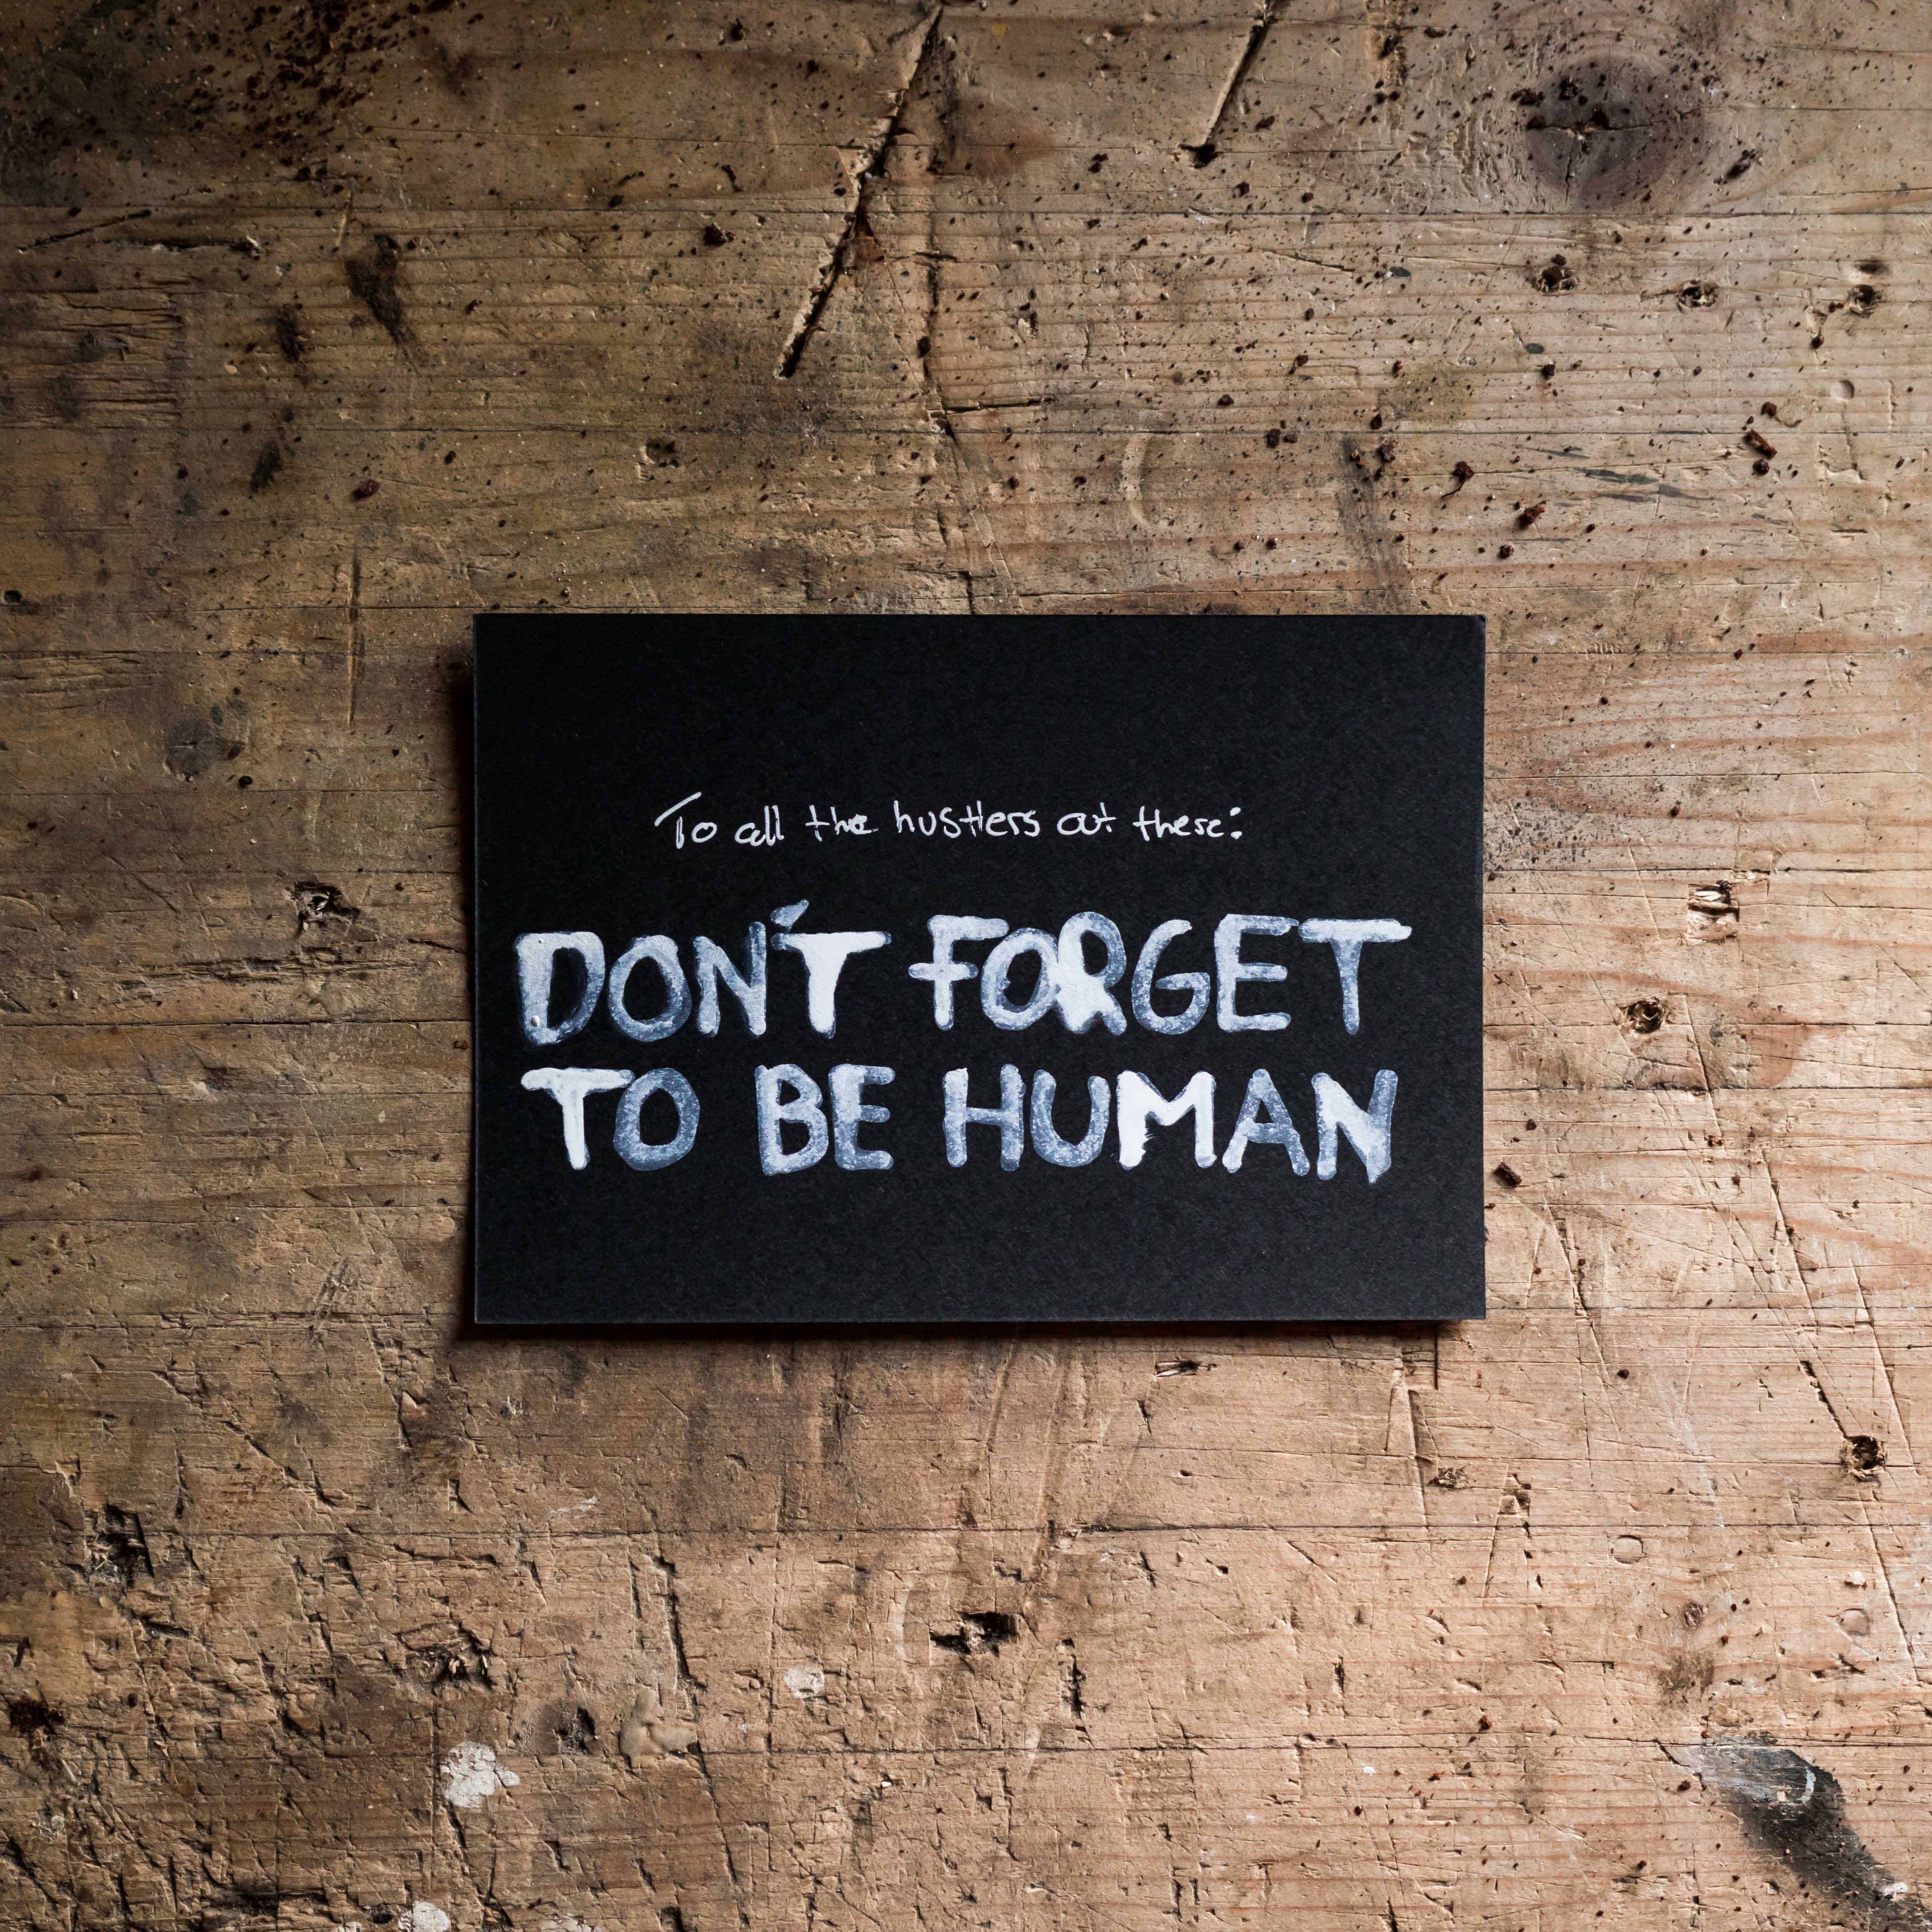 To all the hustlers out there:
DON'T FORGET
TO BE HUMAN